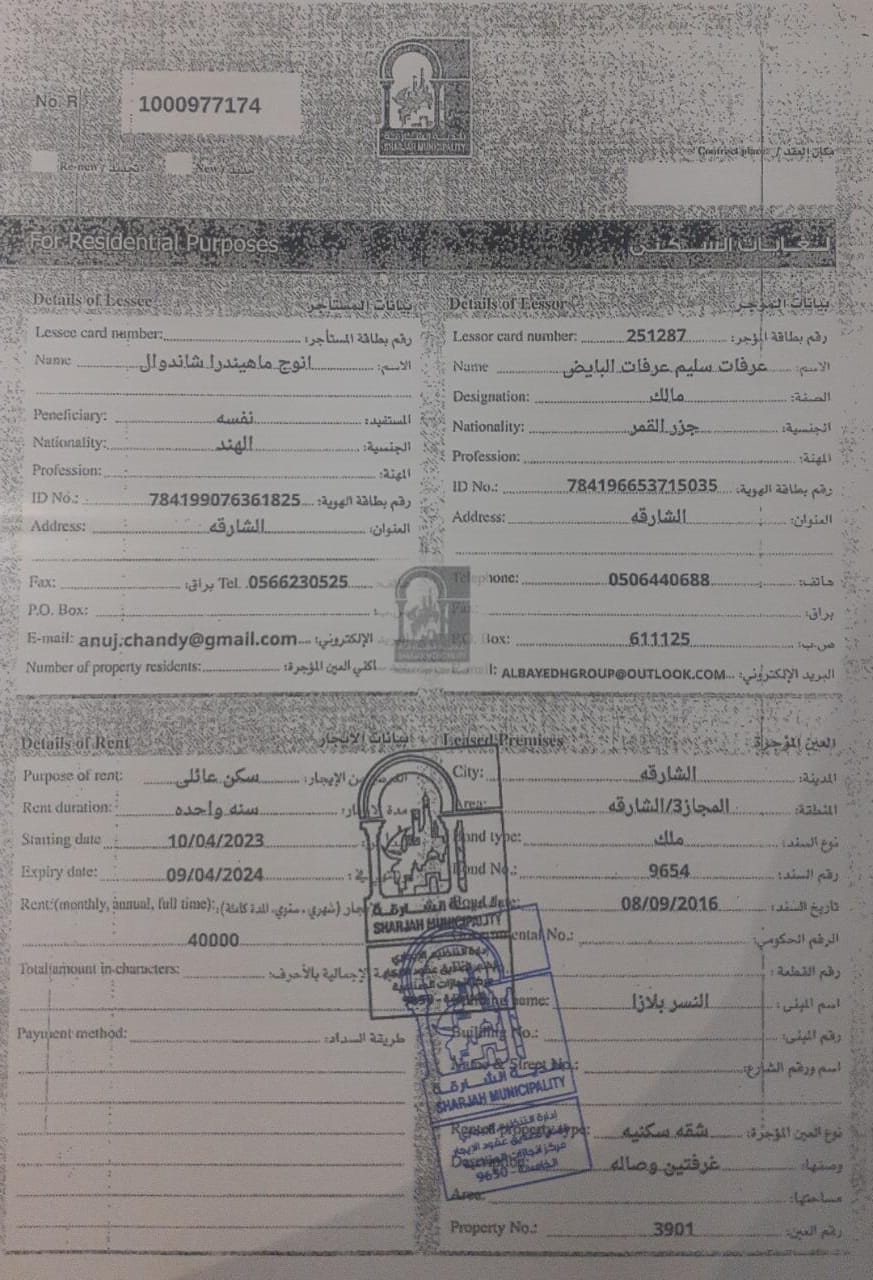 No. R 1000977174
بلدية الشارقة
SHARJAH MUNICIPALITY
Contract place / مكان العقد
Re-new / تجديد New /
For Residential Purposes لغايات السكنى
Details of Lessee بيانات المستأجر
Lessee card number: رقم بطاقة المستأجر:
Name انوج ماهيندرا شاندوال الاسم:
Peneficiary: نفسه المستفيد:
Nationality: الهند الجنسية:
Profession: المهنة:
ID No.: 784199076361825 رقم بطاقة الهوية:
Address: الشارقه العنوان:
Fax: براق: Tel. 0566230525
P.O. Box:
E-mail: anuj.chandy@gmail.com الإلكتروني:
Number of property residents: العين المؤجرة:
Details of Lessor بيانات المؤجر
Lessor card number: 251287 رقم بطاقة المؤجر:
Name عرفات سليم عرفات البايض الاسم:
Designation: مالك الصفة:
Nationality: جزر القمر الجنسية:
Profession: المهنة:
ID No.: 784196653715035 رقم بطاقة الهوية:
Address: الشارقه العنوان:
Telephone: 0506440688 هاتف:
Fax: براق:
P.O. Box: 611125 ص.ب:
ALBAYEDHGROUP@OUTLOOK.COM البريد الإلكتروني:
Details of Rent بيانات الايجار
Purpose of rent: سكن عائلى من الإيجار:
Rent duration: سنه واحده
Starting date 10/04/2023
Expiry date: 09/04/2024
Rent:(monthly, annual, full time): (شهري، سنوي، المدة كاملة)
40000
Total amount in characters: الإجمالية بالأحرف:
Payment method: طريقة السداد:
Leased Premises العين المؤجرة
City: الشارقه المدينة:
Area: المجاز3/الشارقه المنطقة:
Bond type: ملك نوع السند:
Bond No.: 9654 رقم السند:
08/09/2016 تاريخ السند:
No.: الرقم الحكومي:
رقم القطعة:
name: النسر بلازا اسم المبنى:
Building No.: رقم المبنى:
& Street No.: اسم ورقم الشارع:
Rented property type: شقه سكنيه نوع العين المؤجرة:
غرفتين وصاله وصفها:
Area: مساحتها:
Property No.: 3901 رقم العين:
SHARJAH MUNICIPALITY
9650
بلدية الشارقة
SHARJAH MUNICIPALITY
إدارة التنظيم الإيجاري
عقود الايجار
9650